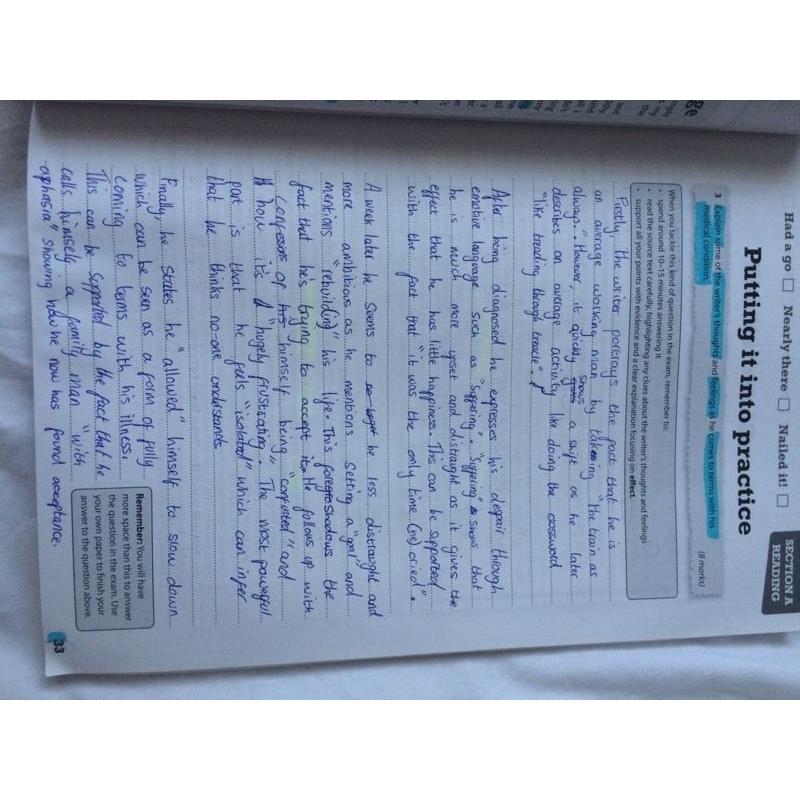 Had a go □ Nearly there □ Nailed it! □
SECTION A
READING
Putting it into practice
3 Explain some of the writer's thoughts and feelings as he comes to terms with his
medical condition.
(8 marks)
When you tackle this kind of question in the exam, remember to:
• spend around 10–15 minutes answering it
• read the source text carefully, highlighting any clues about the writer's thoughts and feelings
• support all your points with evidence and a clear explanation focusing on effect.
Firstly, the writer portrays the fact that he is
an average working man by taking "the train as
always." However, it quickly shows a shift as he later
describes an average activity like doing the crossword
"like treading through treacle".
After being diagnosed he expresses his despair through
emotive language such as "suffering". "Suffering" shows that
he is much more upset and distraught as it gives the
effect that he has little happiness. This can be supported
with the fact that "it was the only time (he) cried".
A week later he seems to be less distraught and
more ambitious as he mentions setting a "goal" and
mentions "rebuilding" his life. This foreshadows the
fact that he's trying to accept it. He follows up with
confessions of himself being "confused" and
how it's "hugely frustrating". The most powerful
part is that he feels "isolated" which can infer
that he thinks no-one understands.
Finally, he states he "allowed" himself to slow down
which can be seen as a form of fully
coming to terms with his illness.
This can be supported by the fact that he
calls himself a family man "with
aphasia" showing how he now has found acceptance.
Remember: You will have
more space than this to answer
the question in the exam. Use
your own paper to finish your
answer to the question above.
33